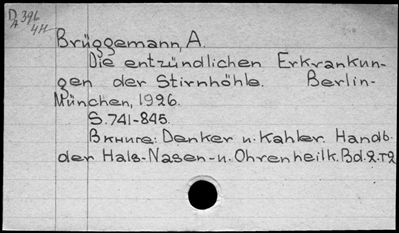 D 396
A 4H
Brüggemann, A.
Die entzündlichen Erkrankun-
gen der Stirnhöhle. Berlin-
München, 1926.
S. 741-845.
В книге: Denker u. Kahler. Handb.
der Hals-Nasen-u. Ohrenheilk. Bd. 2. T2